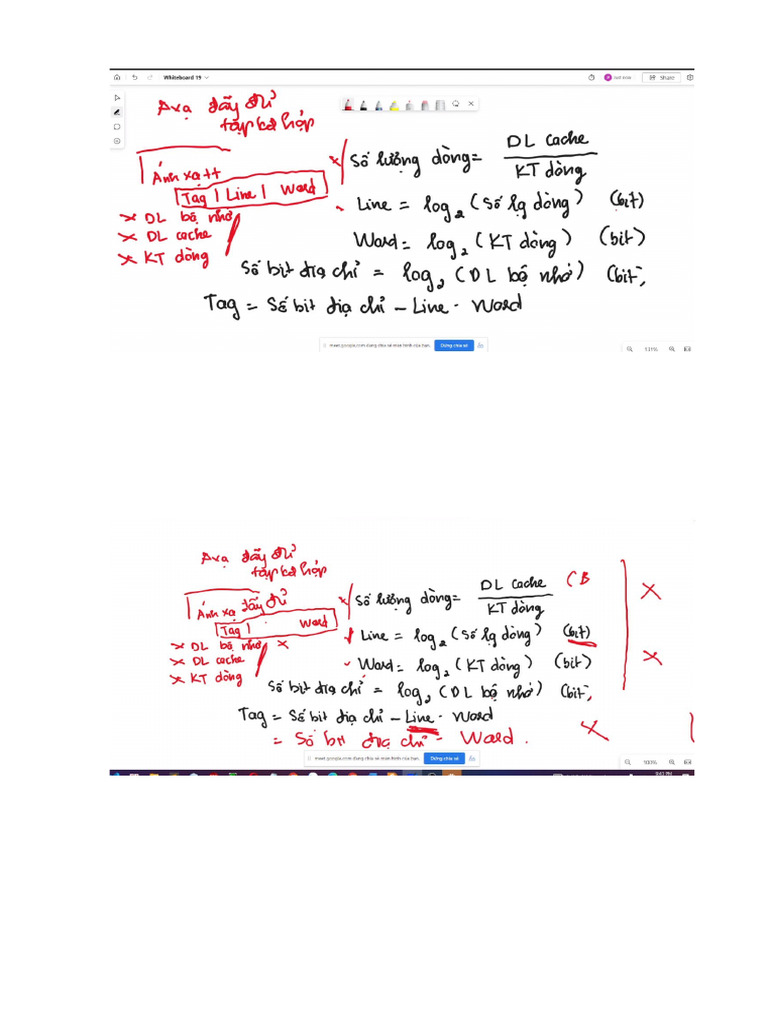 Whiteboard 19
Share
Axạ đầy đủ
tập kế hợp
Ánh xạ tt
Tag | Line | Word
DL bộ nhớ
DL cache
KT dòng
Số lượng dòng = DL cache / KT dòng
Line = log₂ (Số lg dòng) (bit)
Word = log₂ (KT dòng) (bit)
Số bit địa chỉ = log₂ (DL bộ nhớ) (bit)
Tag = Số bit địa chỉ - Line - Word
meet.google.com đang chia sẻ màn hình của bạn.
Dừng chia sẻ
Ẩn
131%
Axạ đầy đủ
tập kế hợp
Ánh xạ đầy đủ
Tag | Word
DL bộ nhớ
DL cache
KT dòng
Số lượng dòng = DL cache / KT dòng (B
Line = log₂ (Số lg dòng) (bit)
Word = log₂ (KT dòng) (bit)
Số bit địa chỉ = log₂ (DL bộ nhớ) (bit)
Tag = Số bit địa chỉ - Line - Word
= Số bit địa chỉ - Word.
meet.google.com đang chia sẻ màn hình của bạn.
Dừng chia sẻ
Ẩn
100%
9:43 PM